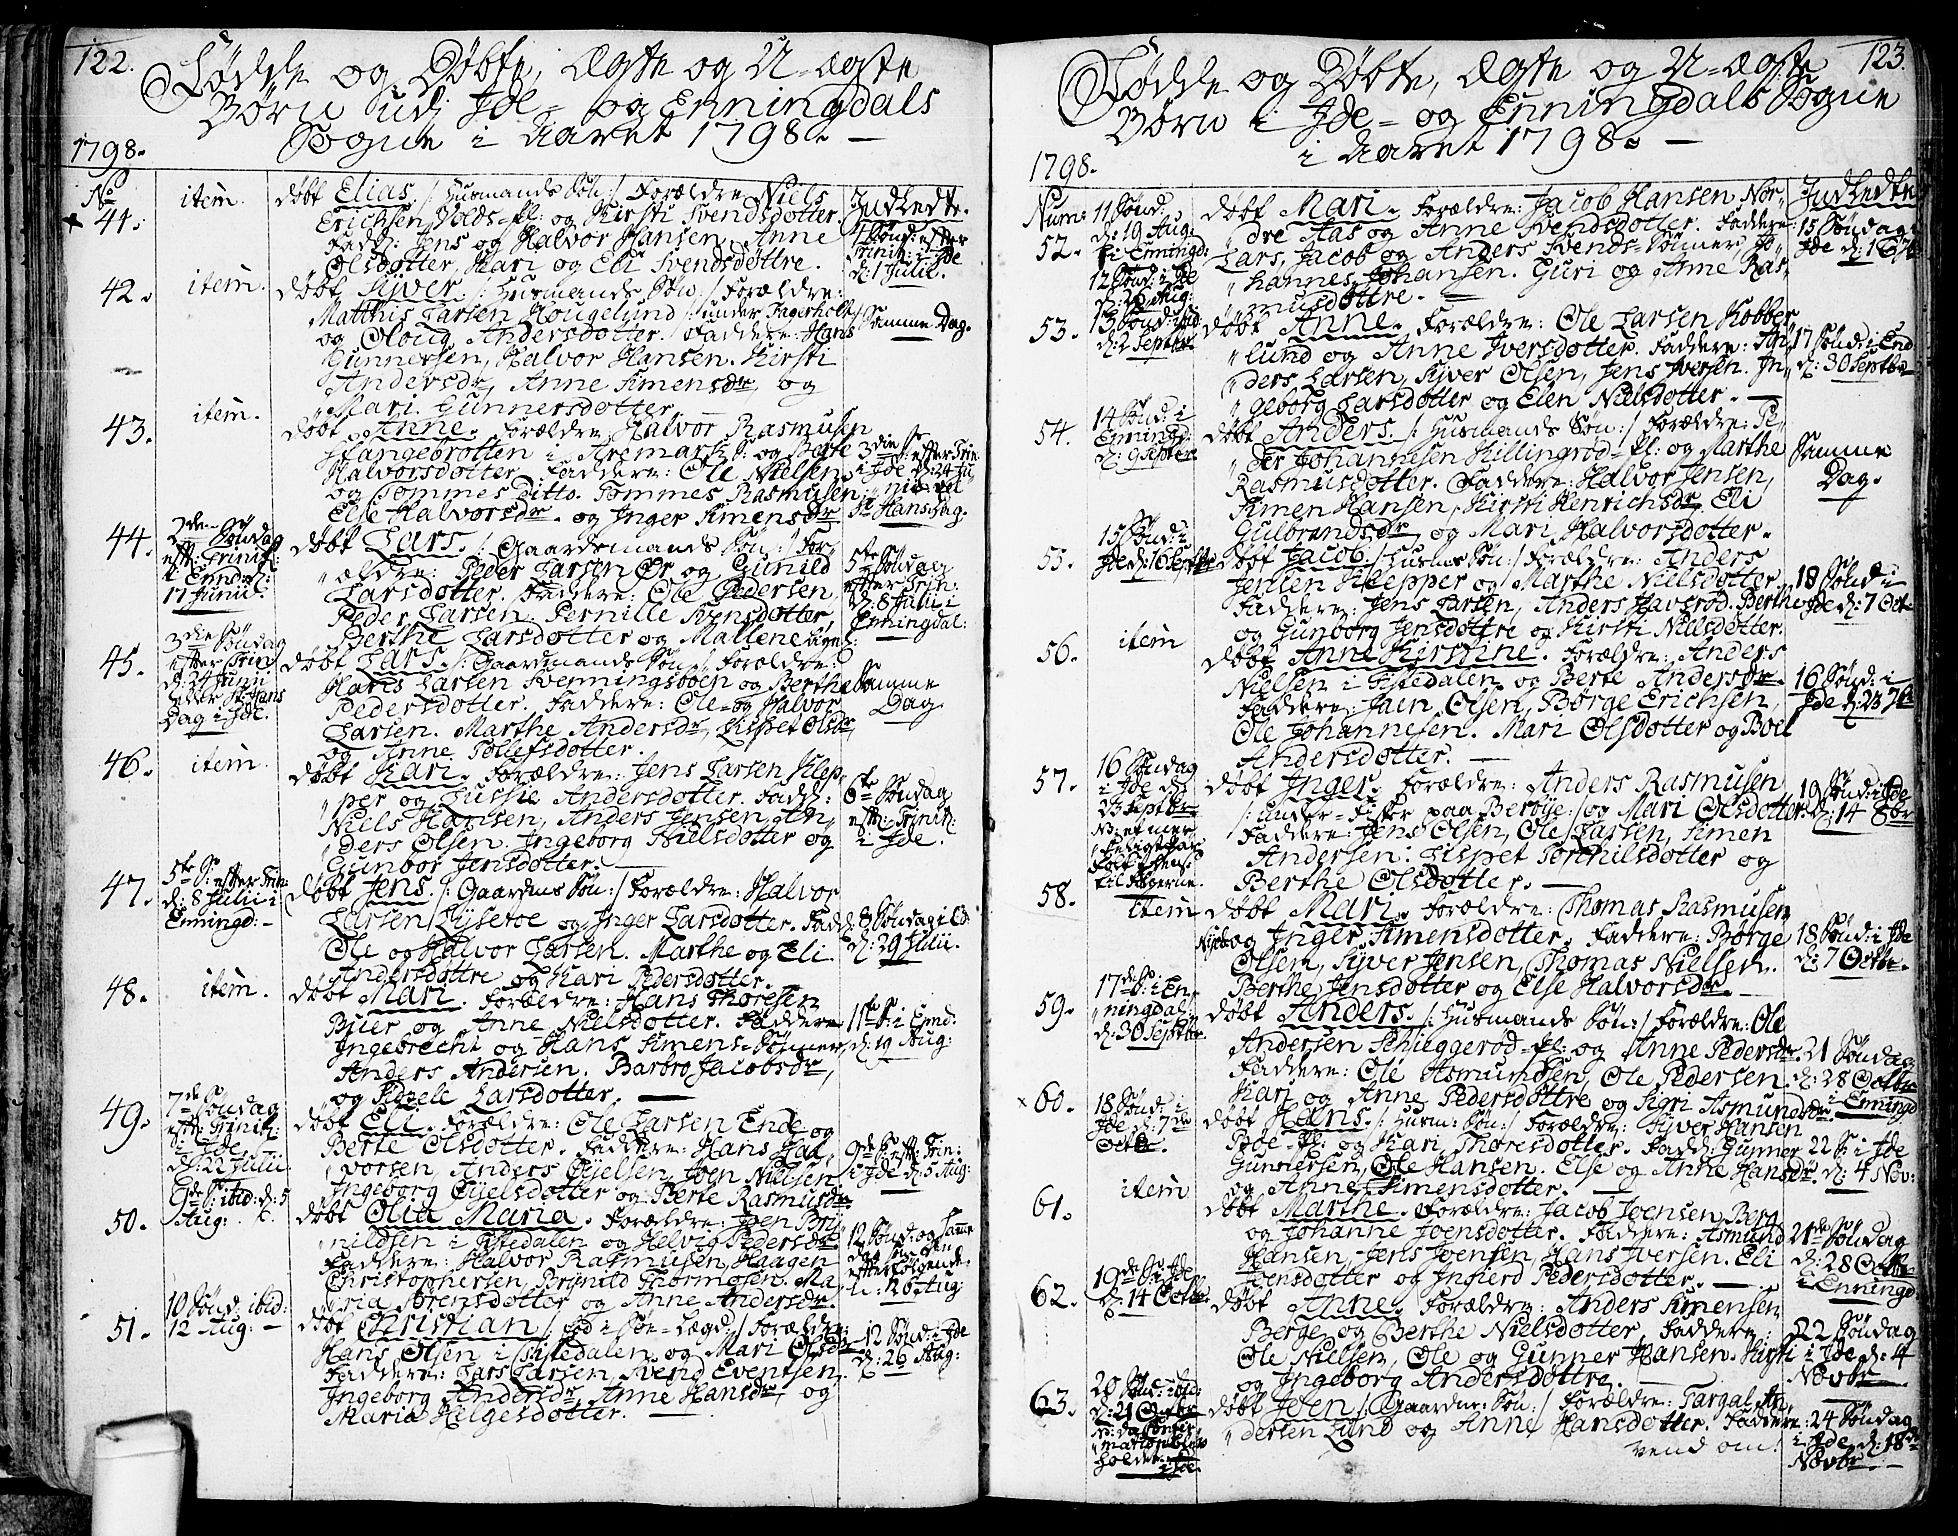 122.
Fødde og Døbte, Ægte og U-ægte
Børn udj Jde- og Enningdals
Sogne i Aaret 1798. —
1798.
No
41. item. døbt Elias /: Husmands Søn :/ Forældre Niels
Erichsen Volds-pl: og Kirsti Svendsdotter.
Fadd: Jens og Halvor Hansen, Anne
Olsdotter, Kari og Eli Svendsdøttre.
Indledte.
4 Sønd: efter
Trinit: i Jde
d: 1 Julii.
42. item. døbt Syver. /: Husmands Søn :/ Forældre:
Matthis Larsen Hougelund /: under Fagerholt :/
og Oloug Andersdotter. Faddere: Hans
Gunnersen, Halvor Hansen. Kirsti
Andersdr, Anne Simensdr, og
Mari Gunnersdotter. —
Samme Dag.
43. item. døbt Anne. Forældre, Halvor Rasmusen
Hangebrotten i Aremark S: og Berte
Halvorsdotter. Faddere: Ole Nielsen
og Tommes Ditto. Tommes Rasmusen,
Else Halvorsdr. og Inger Simensdr
3die S: efter Trin:
i Jde d: 24 Ju-
nii
St Hansdag.
44. 2den Søndag
efft: Trinit:
i Ennd:
17 Junii.
døbt Lars. /: Gaardsmands Søn :/ For-
ældre: Peder Larsen Ør og Gunild
Larsdotter. Faddere: Ole Pedersen,
Peder Larsen. Pernille Svensdotter,
Berthe Larsdotter og Mallene
5te Søndag
efter Trin:
d: 8 Julii i
Enningdal:
45. 3die Søndag
efter Trin:
d: 24 Junii
St Hans
Dag i Jde.
døbt Lars. /: Gaardmands Søn :/ Forældre:
Hans Larsen Svenningsbøen og Berthe
Pedersdotter. Faddere: Ole og Halvor
Larsen. Marthe Andersdr, Lispet Olsdr,
og Anne Tollefsdotter.
Samme
Dag
46. item. døbt Kari. Forældre: Jens Larsen Klep-
per og Jussie Andersdotter. Fadd:
Niels Hansen, Anders Jensen, An-
ders Olsen. Ingeborg Nielsdotter og
Gunbor Jensdotter. —
6te Søndag
efft: Trinit:
i Jde.
47. 5te S: efter Trin:
d: 8 Julii i
Enningd: —
døbt Jens /: Gaardms Søn :/ Forældre: Halvor
Larsen Lyseroe og Inger Larsdotter. Fadd:
Ole og Halvor Larsen. Marthe og Eli
Andersdøttre og Kari Pedersdotter.
8 Søndag i
d: 29 Julii.
48. item. døbt Mari. Forældre: Hans Thoresen
Buer og Anne Nielsdotter. Faddere
Ingebrecht og Hans Simens-Sønner,
Anders Andersen. Barbro Jacobsdr,
og Larsdotter. —
11te S: i Ennd:
d: 19 Aug:
49. 7de Søndag
efft: Trinit:
i Jde
d: 22 Julii
døbt Eli. Forældre: Ole Larsen Ende og
Berte Olsdotter. Faddere: Hans Hal-
vorsen, Anders Eyelsen, Joen Nielsen.
Ingeborg Eyelsdotter og Berte Rasmusdr
9de S: efft: Trin:
i Jde d: 5 Aug:
50. 9de S: ibid: d: 5
Aug:
døbt Olia Maria. Forældre: Joen Bry-
nildsen i Tistedalen og Helvig Pedersdr
Faddere: Halvor Rasmusen, Haagen
Christophersen, Brynild Thormosen. Ma-
ria Sørensdotter og Anne Andersdr.
12 Sønd: og samme
Dag
efterfølgende
d: 26 Aug:
51. 10 Sønd: ibid:
12 Aug: —
døbt Christian /: Søe-Lægd :/ Forældre:
Hans Olsen i Tistedalen og Mari Olsdr
Faddere: Lars Larsen, Svend Eventsen.
Ingeborg Andersdr, Anne Hansdr, og
Maria Helgesdotter. —
12 Sønd: i Jde
d: 26 Aug:
123.
Fødde og Døbte, Ægte og U-ægte
Børn i Jde- og Enningdals Sogne
i Aaret 1798. —
1798.
Num:
52. 11 Sønd:
d: 19 Aug:
i Enningd:
døbt Mari. Forældre: Jacob Hansen Nor-
dre Aas og Anne Svendsdotter. Faddere:
Lars, Jacob og Anders Svends-Sønner, Jo-
hannes Johansen. Guri og Anne Ras-
musdøttre. —
Indledte
15 Søndag i
Jde d: 16
12 Sønd: i Jde
d: 26 Aug:
53. 13 Sønd: ibid
d: 2 Septbr.
døbt Anne. Forældre: Ole Larsen Kobber-
lund og Anne Iversdotter. Faddere: An-
ders Larsen, Syver Olsen, Jens Iversen. In-
geborg Larsdotter og Elen Nielsdotter. —
17 Sønd: i End
d: 30 Septbr
54. 14 Sønd: i
Enningd:
d: 9 Septbr
døbt Anders. /: Husmands Søn :/ Forældre: Pe-
der Johannisen Killingrød-pl: og Marthe
Rasmusdotter. Faddere: Halvor Jensen,
Simen Hansen, Kirsti Henrichsdr, Eli
Gulbrandsdr, og Mari Halvorsdotter.
Samme
Dag.
55. 15 Sønd: i
Jde d: 16 Septbr
døbt Jacob /: Husms Søn :/ Forældre: Anders
Jensen Klepper og Marthe Nielsdotter.
Faddere: Jens Larsen, Anders Havsrød. Berthe
og Gunborg Jensdøttre og Kirsti Nielsdotter.
18 Sønd: i
Jde d: 7 Oct:
56. item døbt Anne Kirstine. Forældre: Anders
Nielsen i Tistedalen og Berte Andersdr.
Faddere: Jain Olsen, Børge Erichsen,
Ole Johannesen. Mari Olsdotter og Boel
Andersdotter. —
16 Sønd: i
Jde d: 23 7br
57. 16 Søndag
i Jde d:
23 Septbr
døbt Inger. Forældre: Anders Rasmusen
/: under-Fisker paa Berbye :/ og Mari Olsdotter.
Faddere: Jens Olsen, Ole Larsen, Simen
Andersen: Lispet Torchilsdotter og
Berthe Olsdotter. —
19 Sønd: i Jde
d: 14 8br
58. item døbt Mari. Forældre: Thomas Rasmusen
og Inger Simensdotter. Faddere: Børge
Olsen, Syver Jensen, Thomas Nielsen.
Berthe Jensdotter og Else Halvorsdr. —
18 Sønd: i Jde
d: 7 Octbr.
59. 17de S: i En-
ningdal
d: 30 Septbr
døbt Anders. /: Husmands Søn :/ Forældre: Ole
Andersen Schieggerød-pl: og Anne Pedersdr.
Faddere: Ole Asmundsen, Ole Pedersen.
Kari og Anne Pedersdøttre og Siri Asmundsdr
21 Søndag
d: 28 Octbr
i Enningd
60. 18 Sønd: i
Jde d: 7de
Octbr.
døbt Hans. /: Husm: Søn :/ Forældre: Syver Hansen
-pl: og Kari Thoresdotter. Fadd: Gunner
Gunnersen, Ole Hansen. Else og Anne Hansdr.
og Anne Simensdotter.
22 S: i Jde
d: 4 Nov:
61. item døbt Marthe. Forældre: Jacob Joensen Berg
og Johanne Joensdotter. Faddere: Asmund
Hansen, Jens Joensen, Hans Iversen. Eli
Joensdotter og Ingierd Pedersdotter. —
21de Søndag
d: 28 Octbr
i Enningd:
62. 19de S: i Jde
d: 14 Octbr.
døbt Anne. Forældre: Anders Simensen
Berge og Berthe Nielsdotter. Faddere:
Ole Nielsen, Ole og Gunner Hansen. Kirsti
og Ingeborg Andersdøttre. —
22 Søndag
i Jde d: 4
Novbr
63. 20 Sønd: ibid:
d: 21 Octbr
døbt Joen /: Gaardm: Søn :/ Forældre: Targal An-
dersen Lund og Anne Hansdotter. Faddere:
vend om:
24 Søndag
i Jde d: 18de
Novbr.